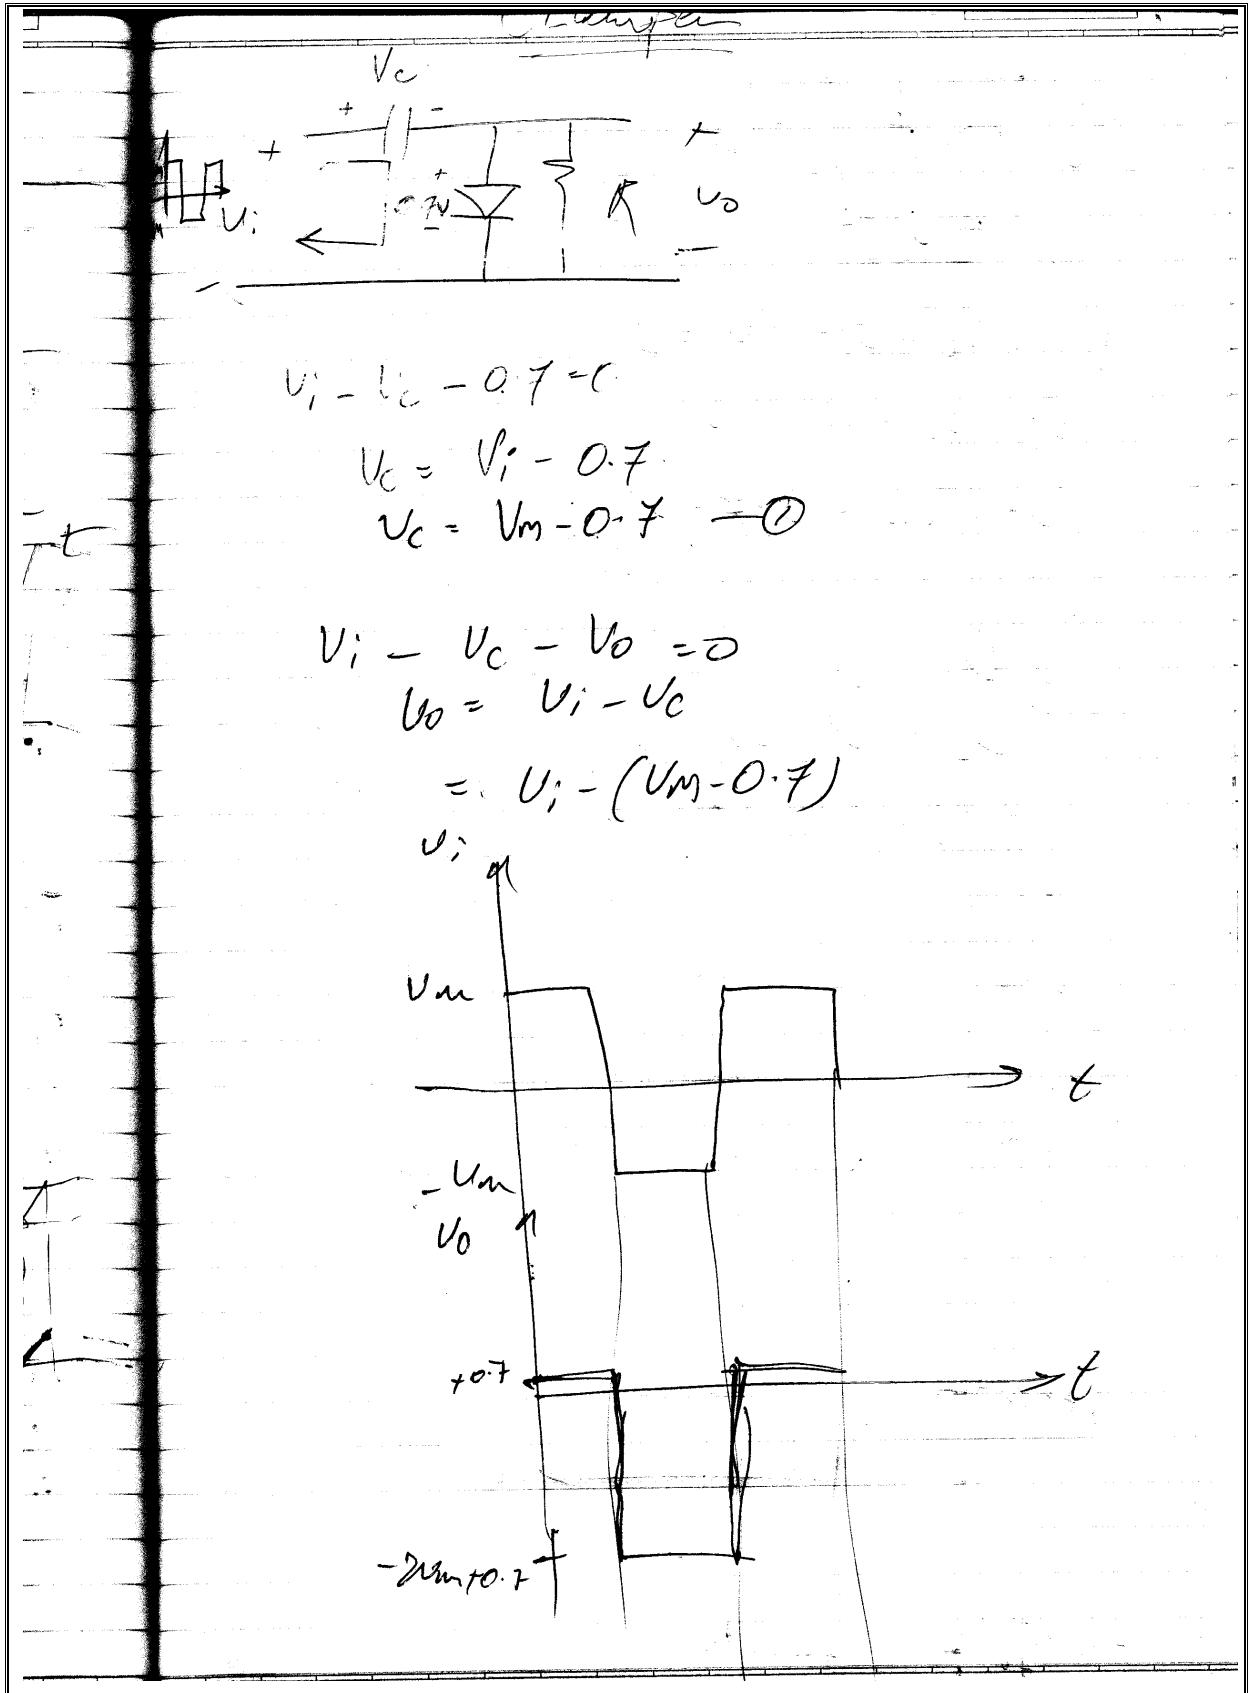 Clamper
Vc
+ -
+ +
+
0.7V
-
R Vo
Vi
-
-
Vi - Vc - 0.7 = 0
Vc = Vi - 0.7
Vc = Vm - 0.7 — ①
Vi - Vc - Vo = 0
Vo = Vi - Vc
= Vi - (Vm - 0.7)
Vi
Vm
t
t
-Vm
Vo
+0.7
t
-2Vm+0.7